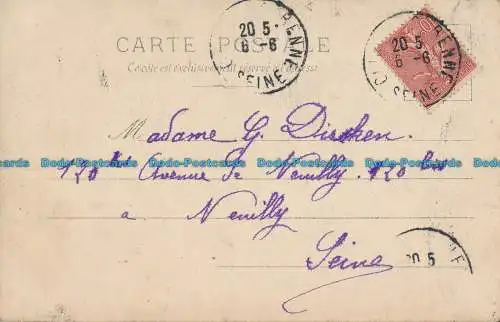 CARTE POSTALE
Ce côté est exclusivement réservé à l'adresse
20 5
6 -6
SEINE
20 5
6 -6
SEINE
Madame G. Dirchen.
120 bis Avenue de Neuilly. 120 bis
Dodo-Postcards Dodo-Postcards Dodo-Postcards Dodo-Postcards Dodo-Postcards
à Neuilly
Seine
20 5